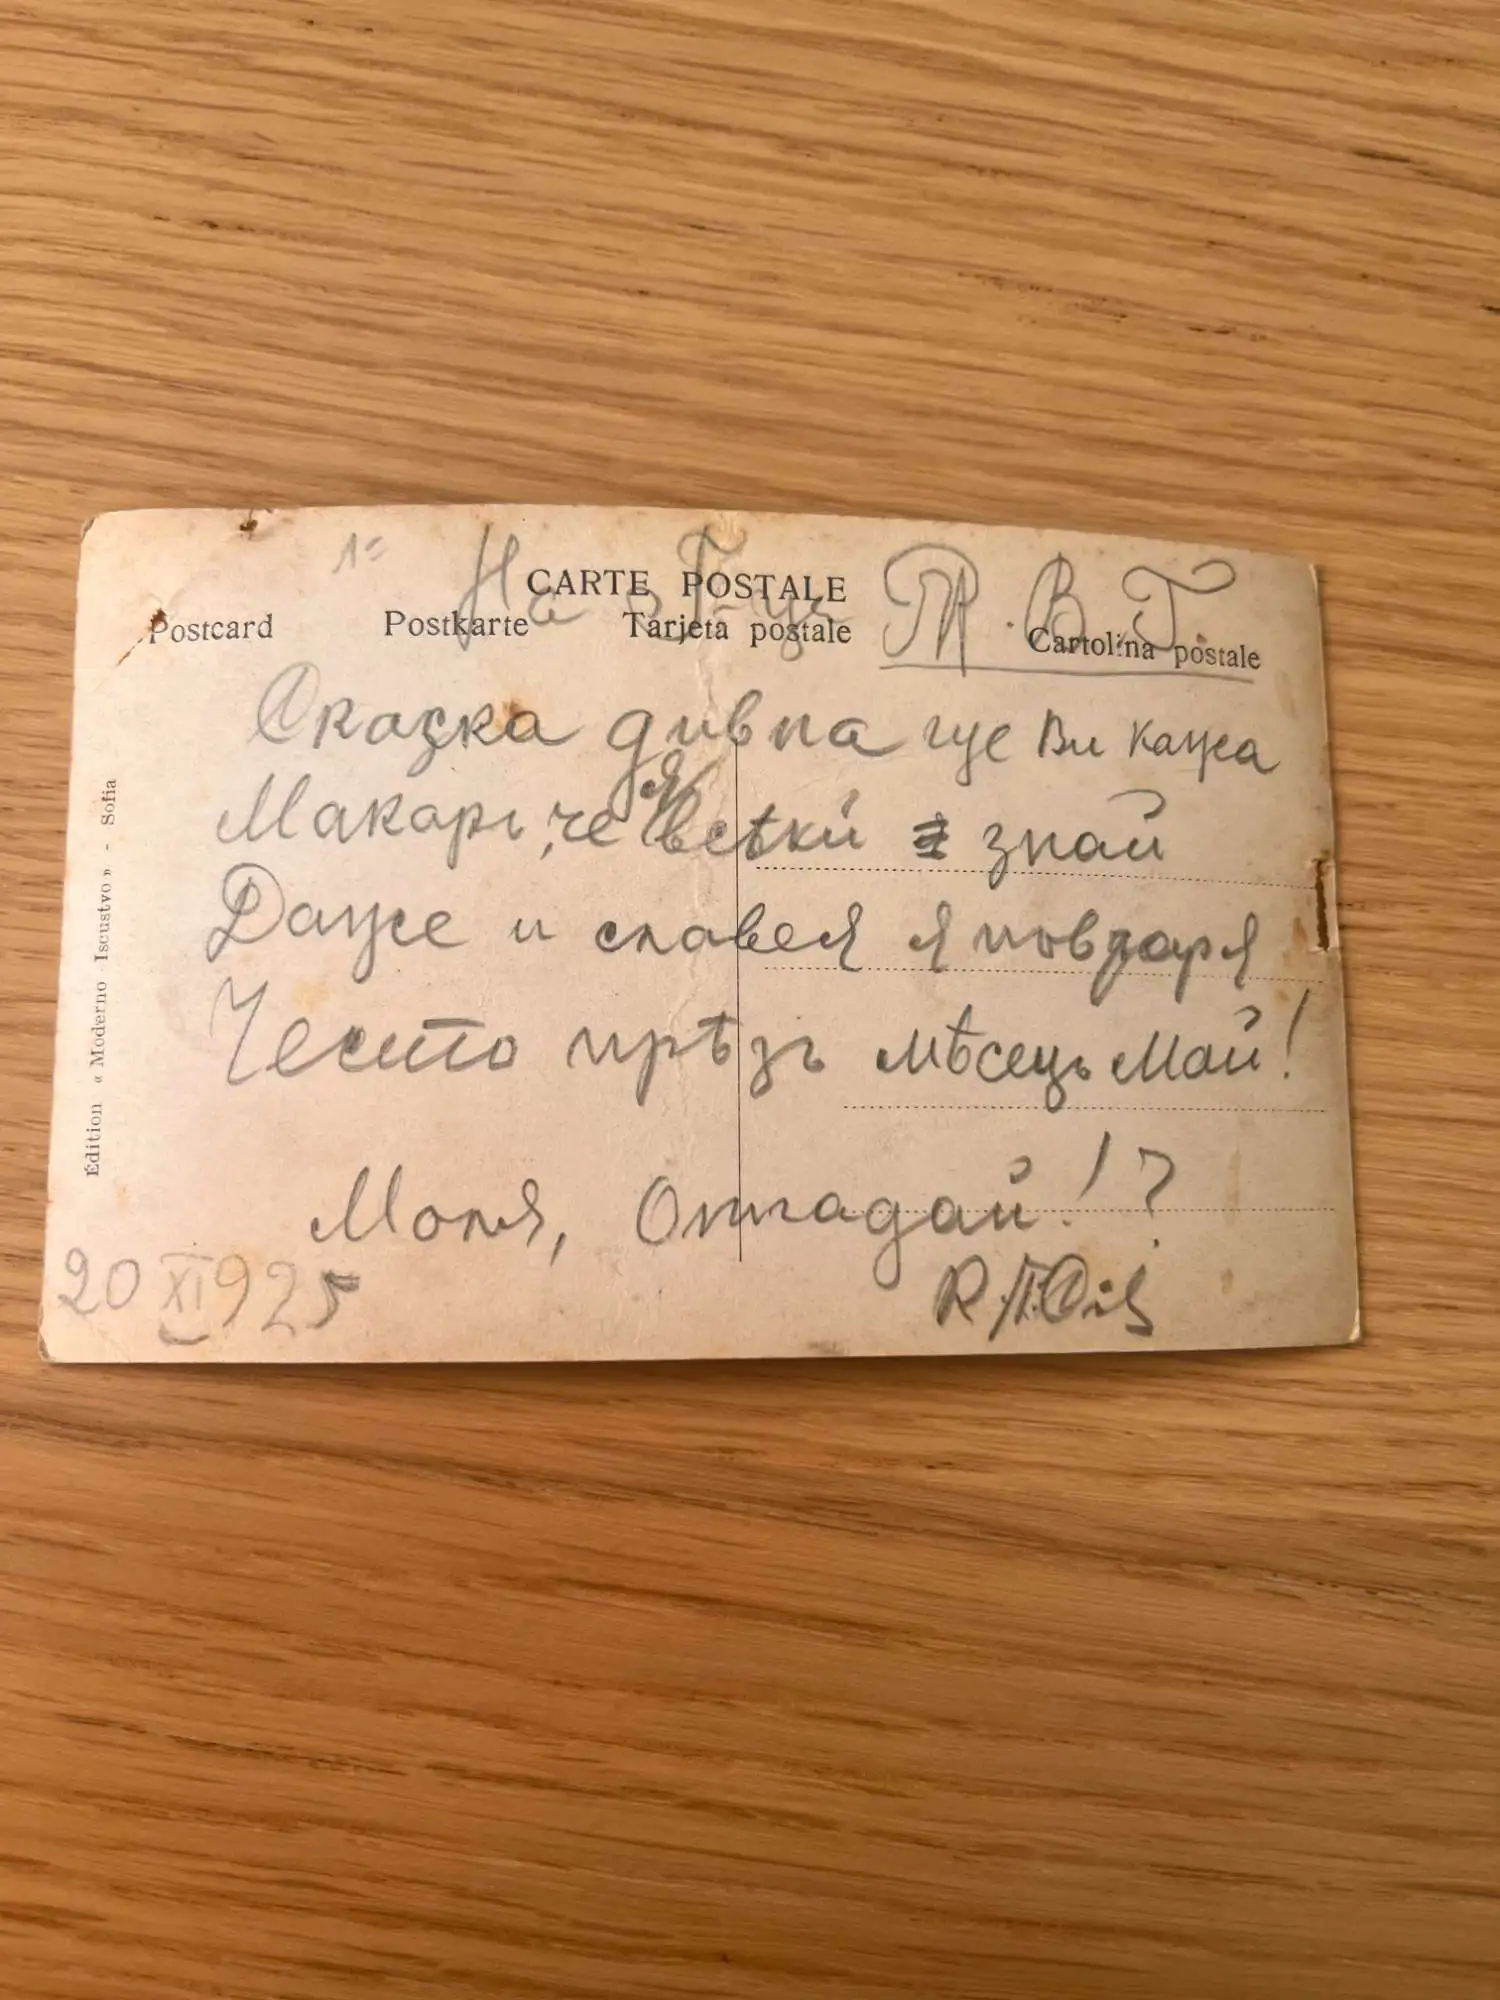 1=
На Г-це М. В. Г.
CARTE POSTALE
Postcard Postkarte Tarjeta postale Cartolina postale
Сказка дивна гще Ви кажа
Макаръ, че я всѣкй знай
Даже и славея я повтаря
Често прѣзъ мѣсецъ Май!
Моля, Отгадай!?
20 XI 925
Édition « Moderno Iscustvo » - Sofia